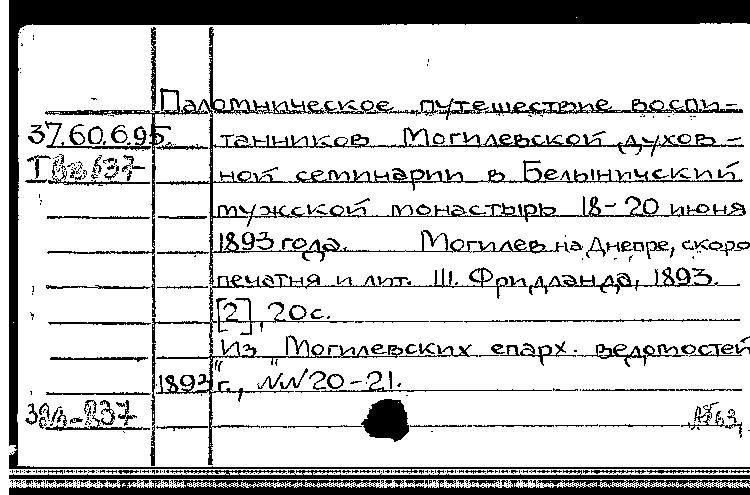 Паломническое путешествие воспи-
37.60.6.95. танников Могилевской духов-
ной семинарии в Белыничский
мужской монастырь 18-20 июня
1893 года. Могилев на Днепре, скоро
печатня и лит. Ш. Фридланда, 1893.
[2], 20 с.
Из "Могилевских епарх. ведомостей
1893 г.", NN 20-21.